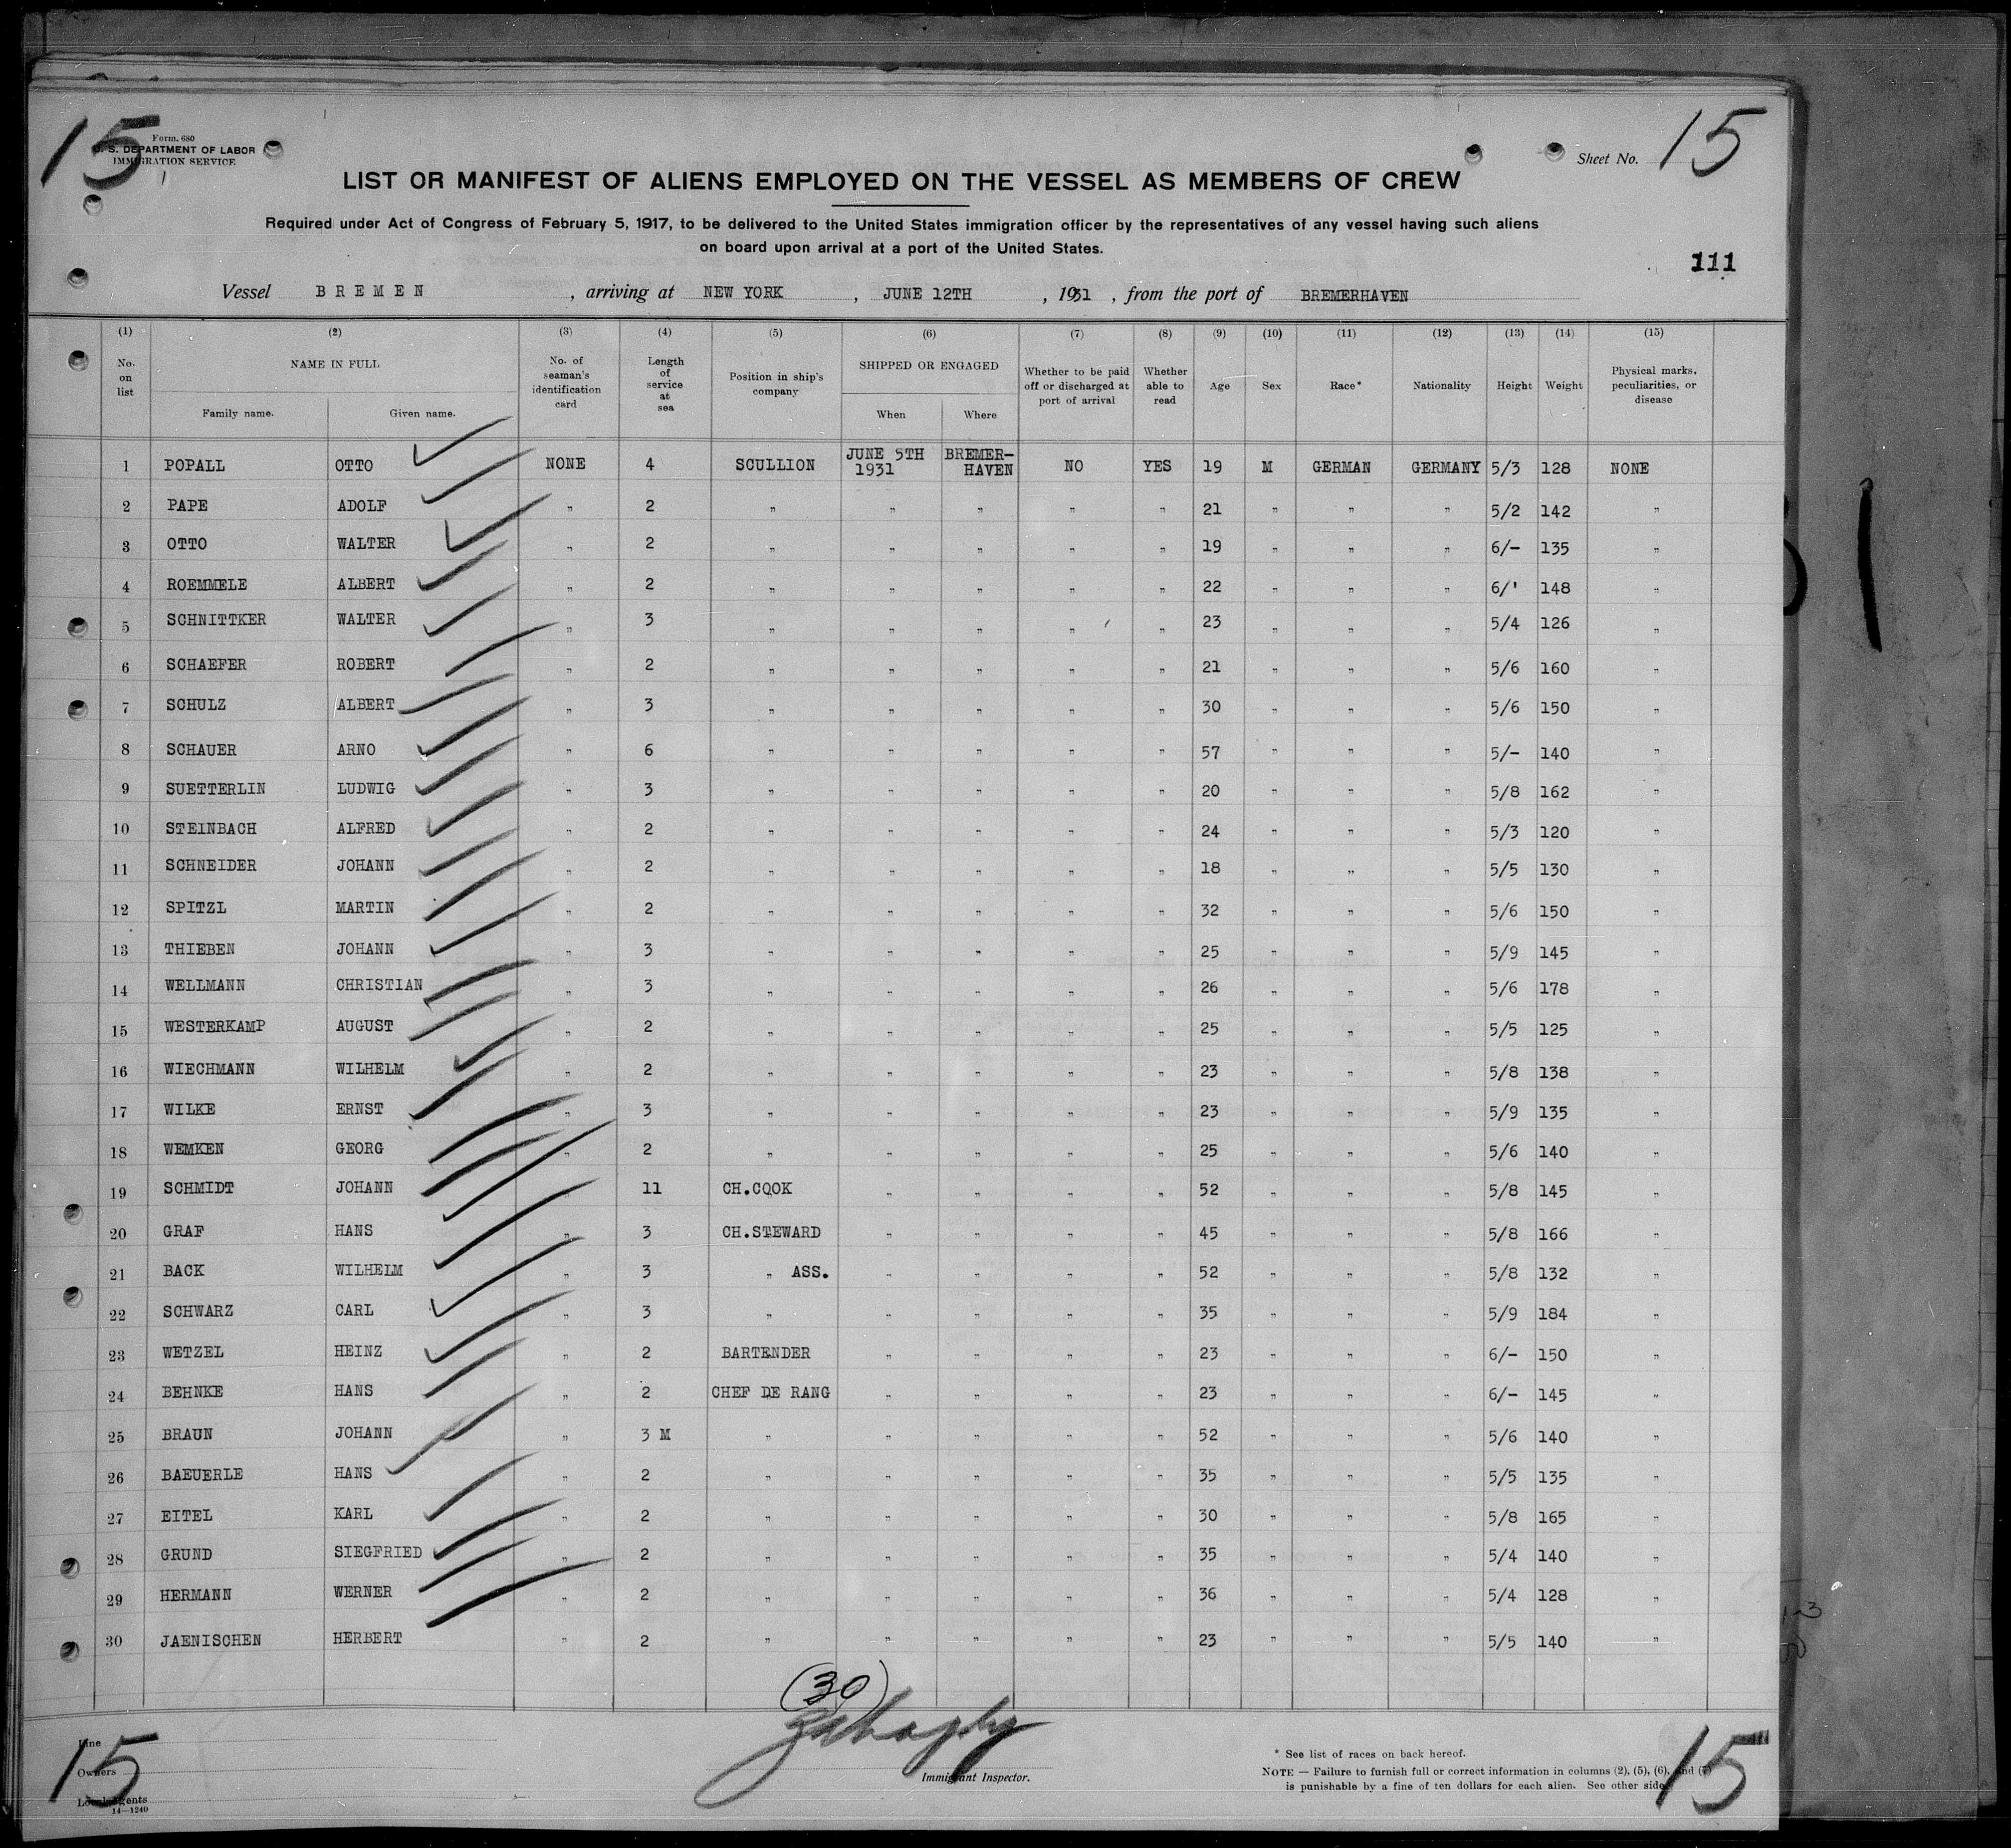 15
Form. 680
U. S. DEPARTMENT OF LABOR
IMMIGRATION SERVICE
Sheet No. 15
LIST OR MANIFEST OF ALIENS EMPLOYED ON THE VESSEL AS MEMBERS OF CREW
Required under Act of Congress of February 5, 1917, to be delivered to the United States immigration officer by the representatives of any vessel having such aliens
on board upon arrival at a port of the United States.
111
Vessel BREMEN , arriving at NEW YORK , JUNE 12TH , 1931 , from the port of BREMERHAVEN
(1) (2) (3) (4) (5) (6) (7) (8) (9) (10) (11) (12) (13) (14) (15)
No. on list NAME IN FULL Family name. Given name. No. of seaman's identification card Length of service at sea Position in ship's company SHIPPED OR ENGAGED When Where Whether to be paid off or discharged at port of arrival Whether able to read Age Sex Race* Nationality Height Weight Physical marks, peculiarities, or disease
1 POPALL OTTO NONE 4 SCULLION JUNE 5TH 1931 BREMER-HAVEN NO YES 19 M GERMAN GERMANY 5/3 128 NONE
2 PAPE ADOLF " 2 " " " " " 21 " " " 5/2 142 "
3 OTTO WALTER " 2 " " " " " 19 " " " 6/- 135 "
4 ROEMMELE ALBERT " 2 " " " " " 22 " " " 6/' 148 "
5 SCHNITTKER WALTER " 3 " " " " " 23 " " " 5/4 126 "
6 SCHAEFER ROBERT " 2 " " " " " 21 " " " 5/6 160 "
7 SCHULZ ALBERT " 3 " " " " " 30 " " " 5/6 150 "
8 SCHAUER ARNO " 6 " " " " " 57 " " " 5/- 140 "
9 SUETTERLIN LUDWIG " 3 " " " " " 20 " " " 5/8 162 "
10 STEINBACH ALFRED " 2 " " " " " 24 " " " 5/3 120 "
11 SCHNEIDER JOHANN " 2 " " " " " 18 " " " 5/5 130 "
12 SPITZL MARTIN " 2 " " " " " 32 " " " 5/6 150 "
13 THIEBEN JOHANN " 3 " " " " " 25 " " " 5/9 145 "
14 WELLMANN CHRISTIAN " 3 " " " " " 26 " " " 5/6 178 "
15 WESTERKAMP AUGUST " 2 " " " " " 25 " " " 5/5 125 "
16 WIECHMANN WILHELM " 2 " " " " " 23 " " " 5/8 138 "
17 WILKE ERNST " 3 " " " " " 23 " " " 5/9 135 "
18 WEMKEN GEORG " 2 " " " " " 25 " " " 5/6 140 "
19 SCHMIDT JOHANN " 11 CH.COOK " " " " 52 " " " 5/8 145 "
20 GRAF HANS " 3 CH.STEWARD " " " " 45 " " " 5/8 166 "
21 BACK WILHELM " 3 " ASS. " " " " 52 " " " 5/8 132 "
22 SCHWARZ CARL " 3 " " " " " 35 " " " 5/9 184 "
23 WETZEL HEINZ " 2 BARTENDER " " " " 23 " " " 6/- 150 "
24 BEHNKE HANS " 2 CHEF DE RANG " " " " 23 " " " 6/- 145 "
25 BRAUN JOHANN " 3 M " " " " " 52 " " " 5/6 140 "
26 BAEUERLE HANS " 2 " " " " " 35 " " " 5/5 135 "
27 EITEL KARL " 2 " " " " " 30 " " " 5/8 165 "
28 GRUND SIEGFRIED " 2 " " " " " 35 " " " 5/4 140 "
29 HERMANN WERNER " 2 " " " " " 36 " " " 5/4 128 "
30 JAENISCHEN HERBERT " 2 " " " " " 23 " " " 5/5 140 "
(30)
Immigrant Inspector.
Line
Owners
Local Agents
14—1240
15
* See list of races on back hereof.
NOTE — Failure to furnish full or correct information in columns (2), (5), (6), and (7)
is punishable by a fine of ten dollars for each alien. See other side.
15